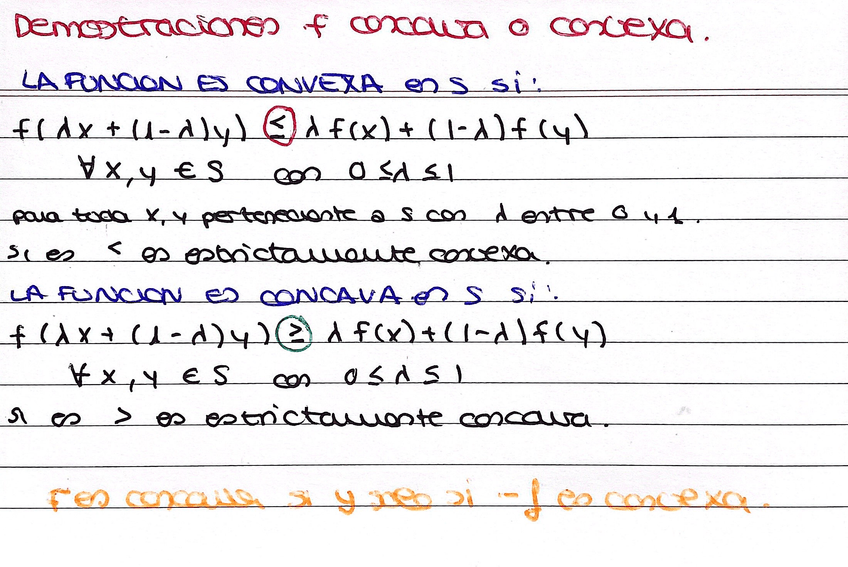 Demostraciones f concava o convexa.
LA FUNCION ES CONVEXA en S si:
f(λx + (1-λ)y) ≤ λf(x) + (1-λ)f(y)
∀x,y ∈ S con 0≤λ≤1
para toda x, y perteneciente a S con λ entre 0 y 1.
si es < es estrictamente convexa.
LA FUNCION ES CONCAVA en S si:
f(λx + (1-λ)y) ≥ λf(x)+(1-λ)f(y)
∀x,y ∈ S con 0≤λ≤1
si es > es estrictamente concava.
f es concava si y solo si -f es convexa.